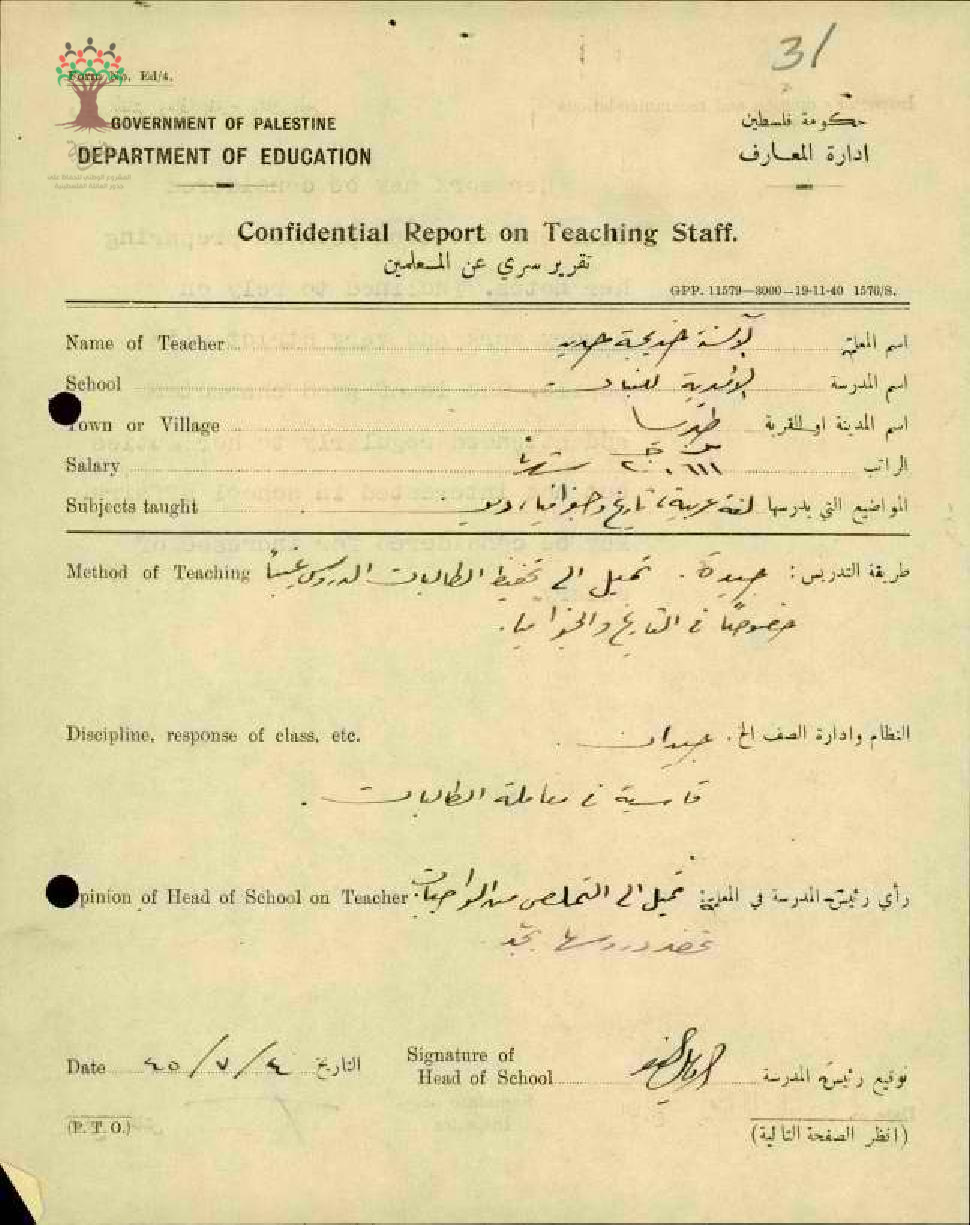 31
Form No. Ed/4.
GOVERNMENT OF PALESTINE
حكومة فلسطين
DEPARTMENT OF EDUCATION
ادارة المعارف
Confidential Report on Teaching Staff.
تقرير سري عن المعلمين
GPP. 11579—3000—19-11-40 1570/S.
Name of Teacher الآنسة خديجة حديد اسم المعلمة
School الاميرية للبنات اسم المدرسة
Town or Village اسم المدينة او القرية
Salary الراتب
Subjects taught لغة عربية، تاريخ وجغرافيا، دين المواضيع التي يدرسها
Method of Teaching طريقة التدريس: جيدة. تميل الى تحفيظ الطالبات الدروس غيباً
خصوصاً في التاريخ والجغرافيا.
Discipline, response of class, etc. النظام وادارة الصف الخ. جيدان.
قاسية في معاملة الطالبات.
Opinion of Head of School on Teacher رأي رئيسة المدرسة في المعلمة: تميل الى التملص من الواجبات.
تحضر دروسها بجد
Date ٤٥/٧/٤ التاريخ
Signature of
Head of School توقيع رئيسة المدرسة
(P. T. O.)
(انظر الصفحة التالية)